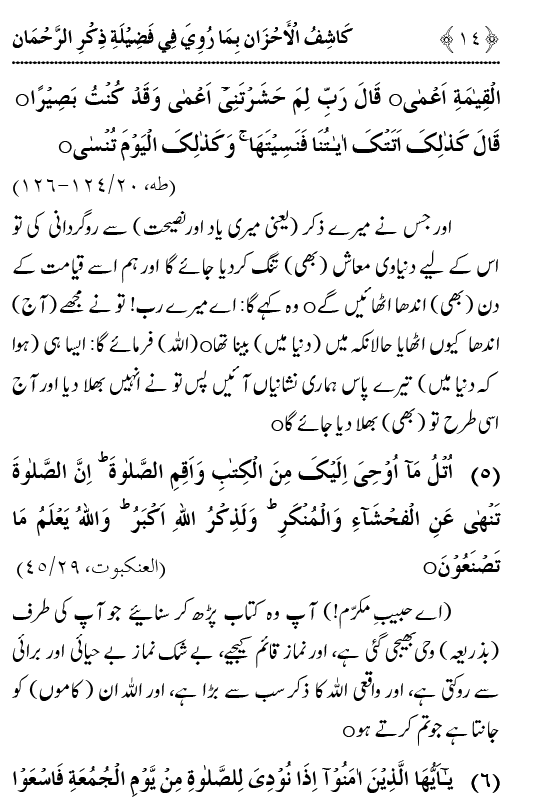 ﴿١٤﴾ كَاشِفُ الْأَحْزَان بِمَا رُوِيَ فِي فَضِيْلَةِ ذِكْرِ الرَّحْمَان
الْقِيٰمَةِ اَعْمٰی○ قَالَ رَبِّ لِمَ حَشَرْتَنِیْٓ اَعْمٰی وَقَدْ كُنْتُ بَصِيْرًا○
قَالَ كَذٰلِکَ اَتَتْکَ اٰيٰتُنَا فَنَسِيْتَهَا ۚ وَكَذٰلِکَ الْيَوْمَ تُنْسٰی○
(طه، ٢٠/١٢٤-١٢٦)
اور جس نے میرے ذکر (یعنی میری یاد اور نصیحت) سے روگردانی کی تو
اس کے لیے دنیاوی معاش (بھی) تنگ کر دیا جائے گا اور ہم اسے قیامت کے
دن (بھی) اندھا اٹھائیں گے○ وہ کہے گا: اے میرے رب! تو نے مجھے (آج)
اندھا کیوں اٹھایا حالانکہ میں (دنیا میں) بینا تھا○ (اللہ) فرمائے گا: ایسا ہی (ہوا
کہ دنیا میں) تیرے پاس ہماری نشانیاں آئیں پس تو نے انہیں بھلا دیا اور آج
اسی طرح تو (بھی) بھلا دیا جائے گا○
(٥) اُتْلُ مَآ اُوْحِیَ اِلَيْکَ مِنَ الْكِتٰبِ وَاَقِمِ الصَّلٰوةَ ؕ اِنَّ الصَّلٰوةَ
تَنْهٰی عَنِ الْفَحْشَآءِ وَالْمُنْكَرِ ؕ وَلَذِكْرُ اللهِ اَكْبَرُ ؕ وَاللهُ يَعْلَمُ مَا
تَصْنَعُوْنَ○ (العنكبوت، ٢٩/٤٥)
(اے حبیبِ مکرّم!) آپ وہ کتاب پڑھ کر سنائیے جو آپ کی طرف
(بذریعہ) وحی بھیجی گئی ہے، اور نماز قائم کیجیے، بے شک نماز بے حیائی اور برائی
سے روکتی ہے، اور واقعی اللہ کا ذکر سب سے بڑا ہے، اور اللہ ان (کاموں) کو
جانتا ہے جو تم کرتے ہو○
(٦) يٰٓاَيُّهَا الَّذِيْنَ اٰمَنُوْٓا اِذَا نُوْدِیَ لِلصَّلٰوةِ مِنْ يَّوْمِ الْجُمُعَةِ فَاسْعَوْا